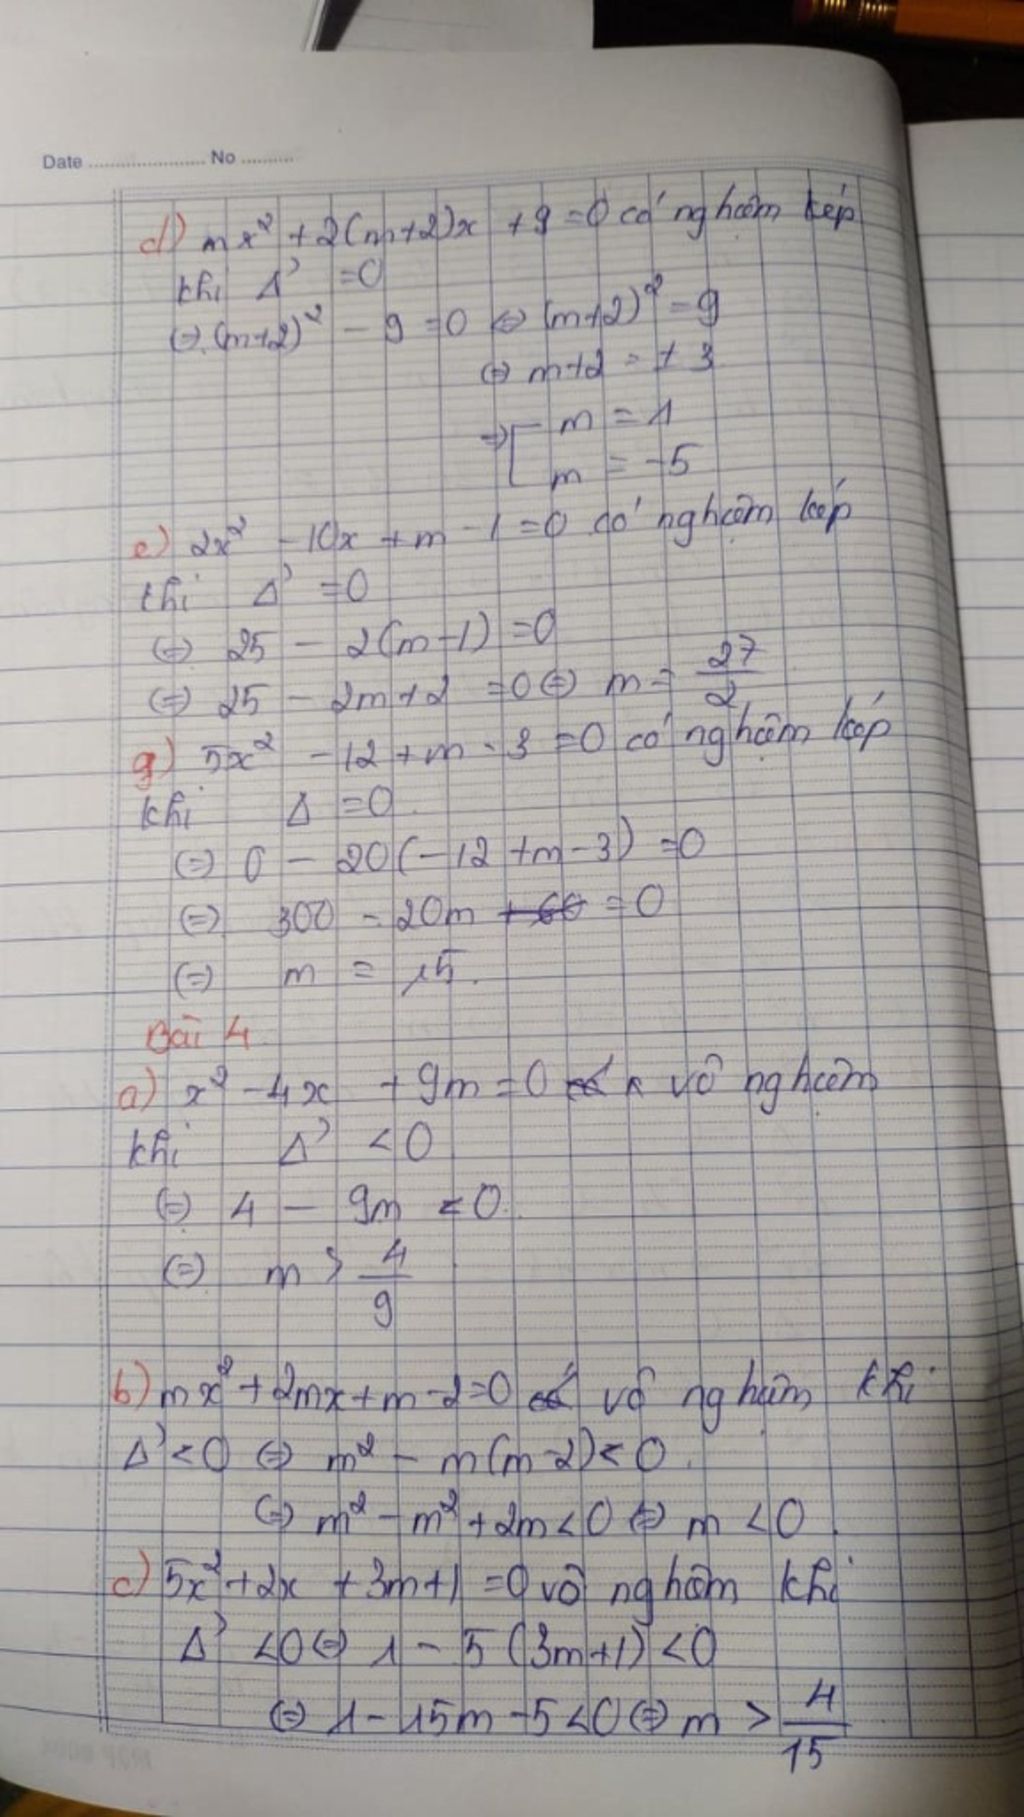 Date ........................ No ...........
d) mx² + 2(m+2)x + 9 = 0 có nghiệm kép
khi Δ' = 0
⇔ (m+2)² - 9 = 0 ⇔ (m+2)² = 9
⇔ m+2 = ± 3
⇒ [ m = 1
m = -5
e) 2x² - 10x + m - 1 = 0 có nghiệm kép
khi Δ' = 0
⇔ 25 - 2(m-1) = 0
⇔ 25 - 2m + 2 = 0 ⇔ m = 27/2
g) 5x² - 12 + m - 3 = 0 có nghiệm kép
khi Δ = 0
⇔ 0 - 20(-12 + m - 3) = 0
⇔ 300 - 20m + 60 = 0
⇔ m = 15.
Bài 4
a) x² - 4x + 9m = 0 vô nghiệm
khi Δ' < 0
⇔ 4 - 9m < 0.
⇔ m > 4/9
b) mx² + 2mx + m - 2 = 0 có vô nghiệm khi
Δ' < 0 ⇔ m² - m(m-2) < 0.
⇔ m² - m² + 2m < 0 ⇔ m < 0.
c) 5x² + 2x + 3m + 1 = 0 vô nghiệm khi
Δ' < 0 ⇔ 1 - 5(3m+1) < 0
⇔ 1 - 15m - 5 < 0 ⇔ m > 4/15